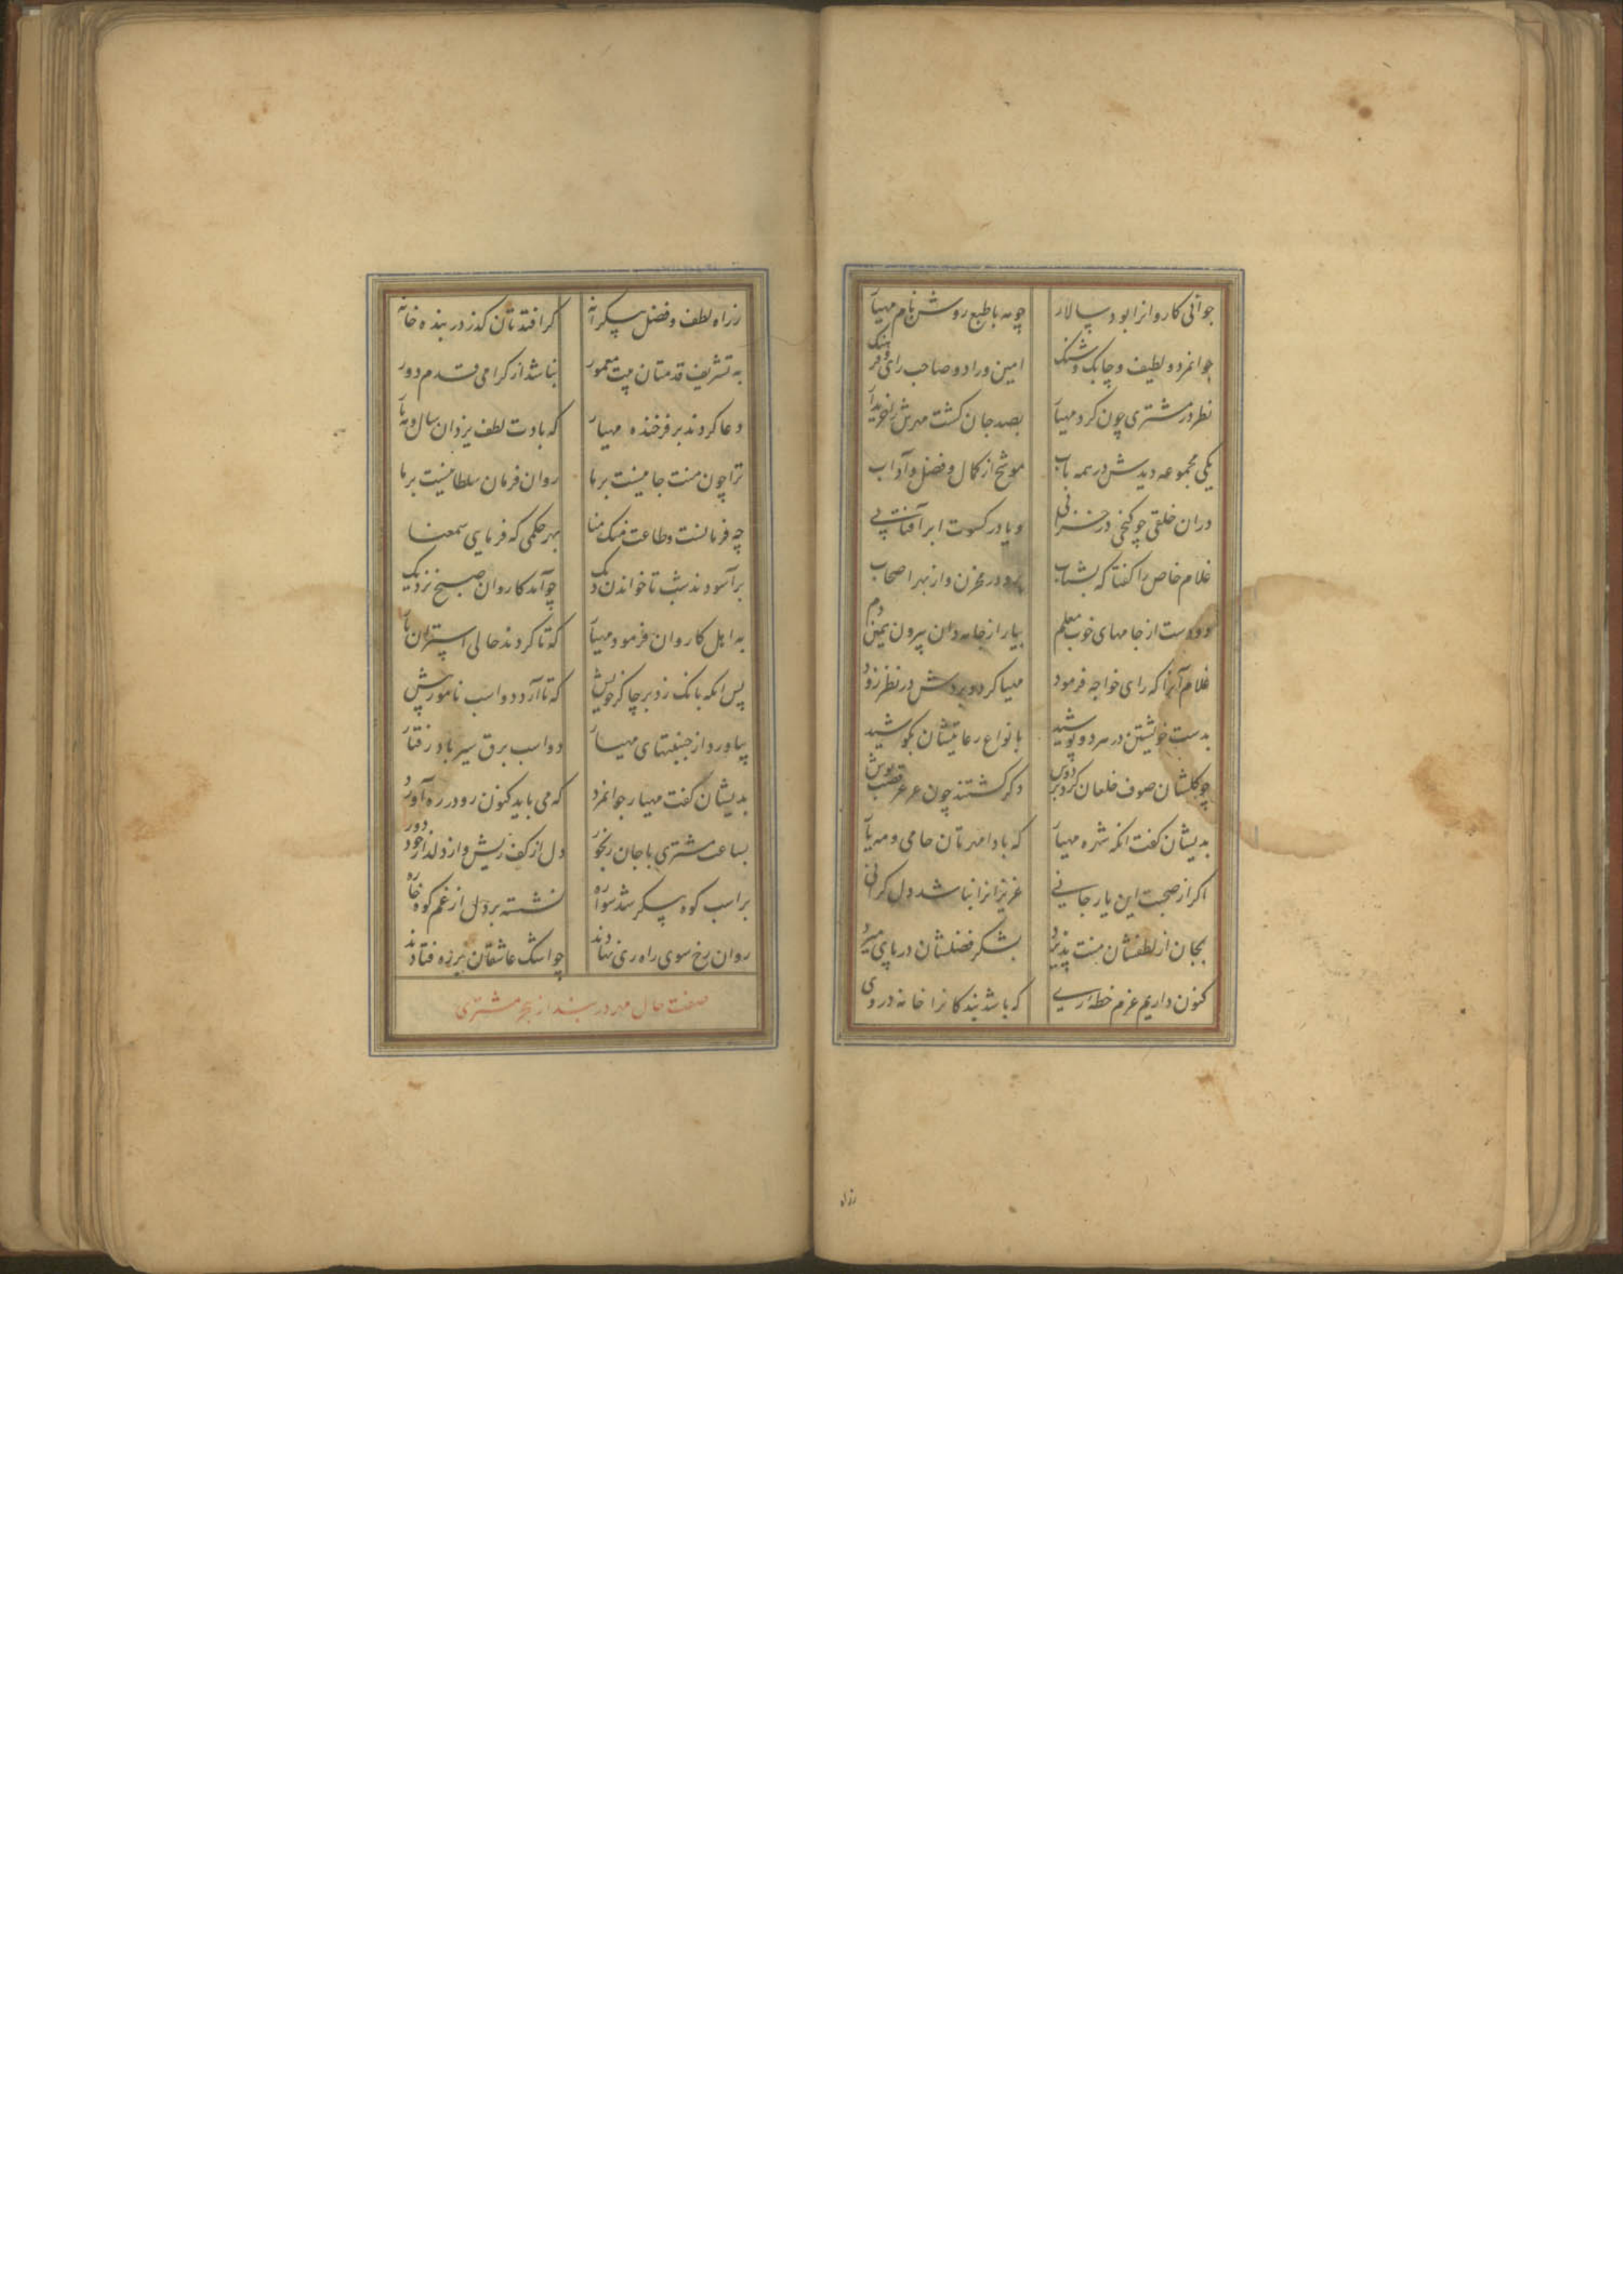 جوانی کاروانرا بود سپالار چو مه با طبع روشن نام مهیار
جوانمرد و لطیف و چابک و شنک امین و راد و صاحب رای و فرهنک
نظر در مشتری چون کرد مهیار بصد جان کشت مهرش را خریدار
یکی مجموعه دیدش در همه باب موشح از کمال و فضل و آداب
دران خلقی چو کنجی در خزانی و یا در کسوت ابر آفتابی
غلام خاص را کفتا که بشتاب برو در مخزن و از بهر اصحاب
دو دست از جامهای خوب معلم بیار از جامه دان بیرون همین دم
غلام آنرا که رای خواجه فرمود مهیا کرد و بردش در نظر زود
بدست خویشتن در هر دو پوشید بانواع رعایتشان بکوشید
چو کلشان صوف خلعان کرد بر دوش دکر کشتند چون عرعر قصب پوش
بدیشان کفت انکه شهره مهیار که بادا مهرتان حامی و مه یار
اکر از صحبت این یار جانی عزیزانرا نباشد دل کرانی
بجان از لطفشان منت پذیرد بشکر فضلشان در پای میرد
کنون داریم عزم خطه ری که باشد بندکانرا خانه در وی
رزاه
ز راه لطف و فضل بیکرانه کر افتدتان کذر در بنده خانه
به تشریف قدمتان بیت معمور نباشد از کرامی قدم دور
دعا کردند بر فرخنده مهیار که بادت لطف یزدان سال و مه یار
ترا چون منت جانیست بر ما روان فرمان سلطانیست بر ما
چه فرمانست و طاعت منک منا بهر حکمی که فرمایی سمعنا
برآسودند شب تا خواندن دیک چو آمد کاروان صبح نزدیک
به اهل کاروان فرمود مهیار که تا کردند حالی استران بار
پس انکه بانک زد بر چاکر خویش که تا آرد دو اسب نامور پیش
بیاورد از جنیبتهای مهیار دو اسب برق سیر باد رفتار
بدیشان کفت مهیار جوانمرد که می باید کنون رو در ره آورد
بساعت مشتری با جان رنجور دل از کف ریش و از دلدار خود دور
بر اسب کوه پیکر شد سواره نشسته بر دل از غم کوه خاره
روان رخ سوی راه ری نهادند چو اشک عاشقان در ره فتادند
صفت حال مهر در بند از هجر مشتری